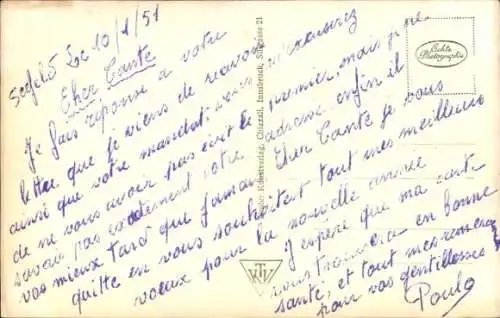 Seefeld Le 10/1/51
Cher Tante
Je fais réponse a votre
lettre que je viens de recevoir
ainsi que votre mandat vous m'excuserez
de ne vous avoir pas écrit le premier, mais je ne
savais pas exactement votre adresse enfin il
vos mieux tard que jamais Cher Tante je vous
quitte en vous souhaitent tout mes meilleurs
voeux pour la nouvelle année
J'espère que ma carte
vous trouvera en bonne
santé, et tout mes
pour vos gentillesses
Paulo
Echte
Photographie
Kunstverlag, Chizzali, Innsbruck,